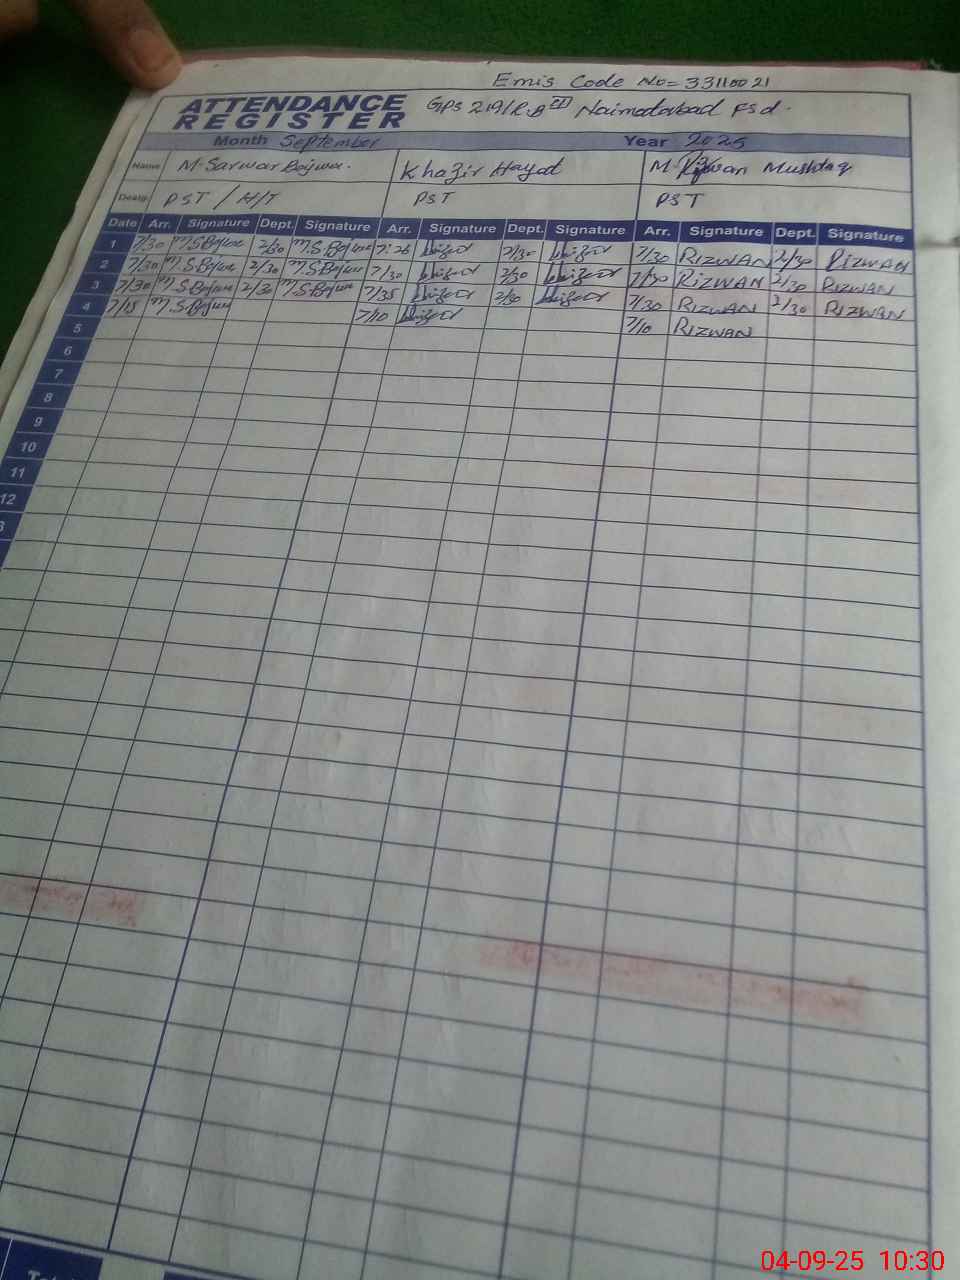 Emis Code No= 33110021
ATTENDANCE REGISTER GPS 219/R.B III Naimatabad Fsd.
Month September Year 2025
Name M. Sarwar Bajwa. Khazir Hayat M. Rizwan Mushtaq
Desig. PST / H/T PST PST
Date Arr. Signature Dept. Signature Arr. Signature Dept. Signature Arr. Signature Dept. Signature
1 7/30 M.S.Bajwa 2/30 M.S.Bajwa 7:26 2/30 7/30 RIZWAN 2/30 RIZWAN
2 7/30 M.S.Bajwa 2/30 M.S.Bajwa 7/30 2/30 7/30 RIZWAN 2/30 RIZWAN
3 7/30 M.S.Bajwa 2/30 M.S.Bajwa 7/35 2/30 7/30 RIZWAN 2/30 RIZWAN
4 7/15 M.S.Bajwa 7/10 7/10 RIZWAN
5
6
7
8
9
10
11
12
04-09-25 10:30